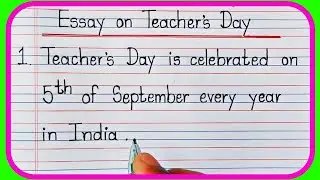 Essay on Teacher's Day
1. Teacher's Day is celebrated on
5th of September every year
in India.